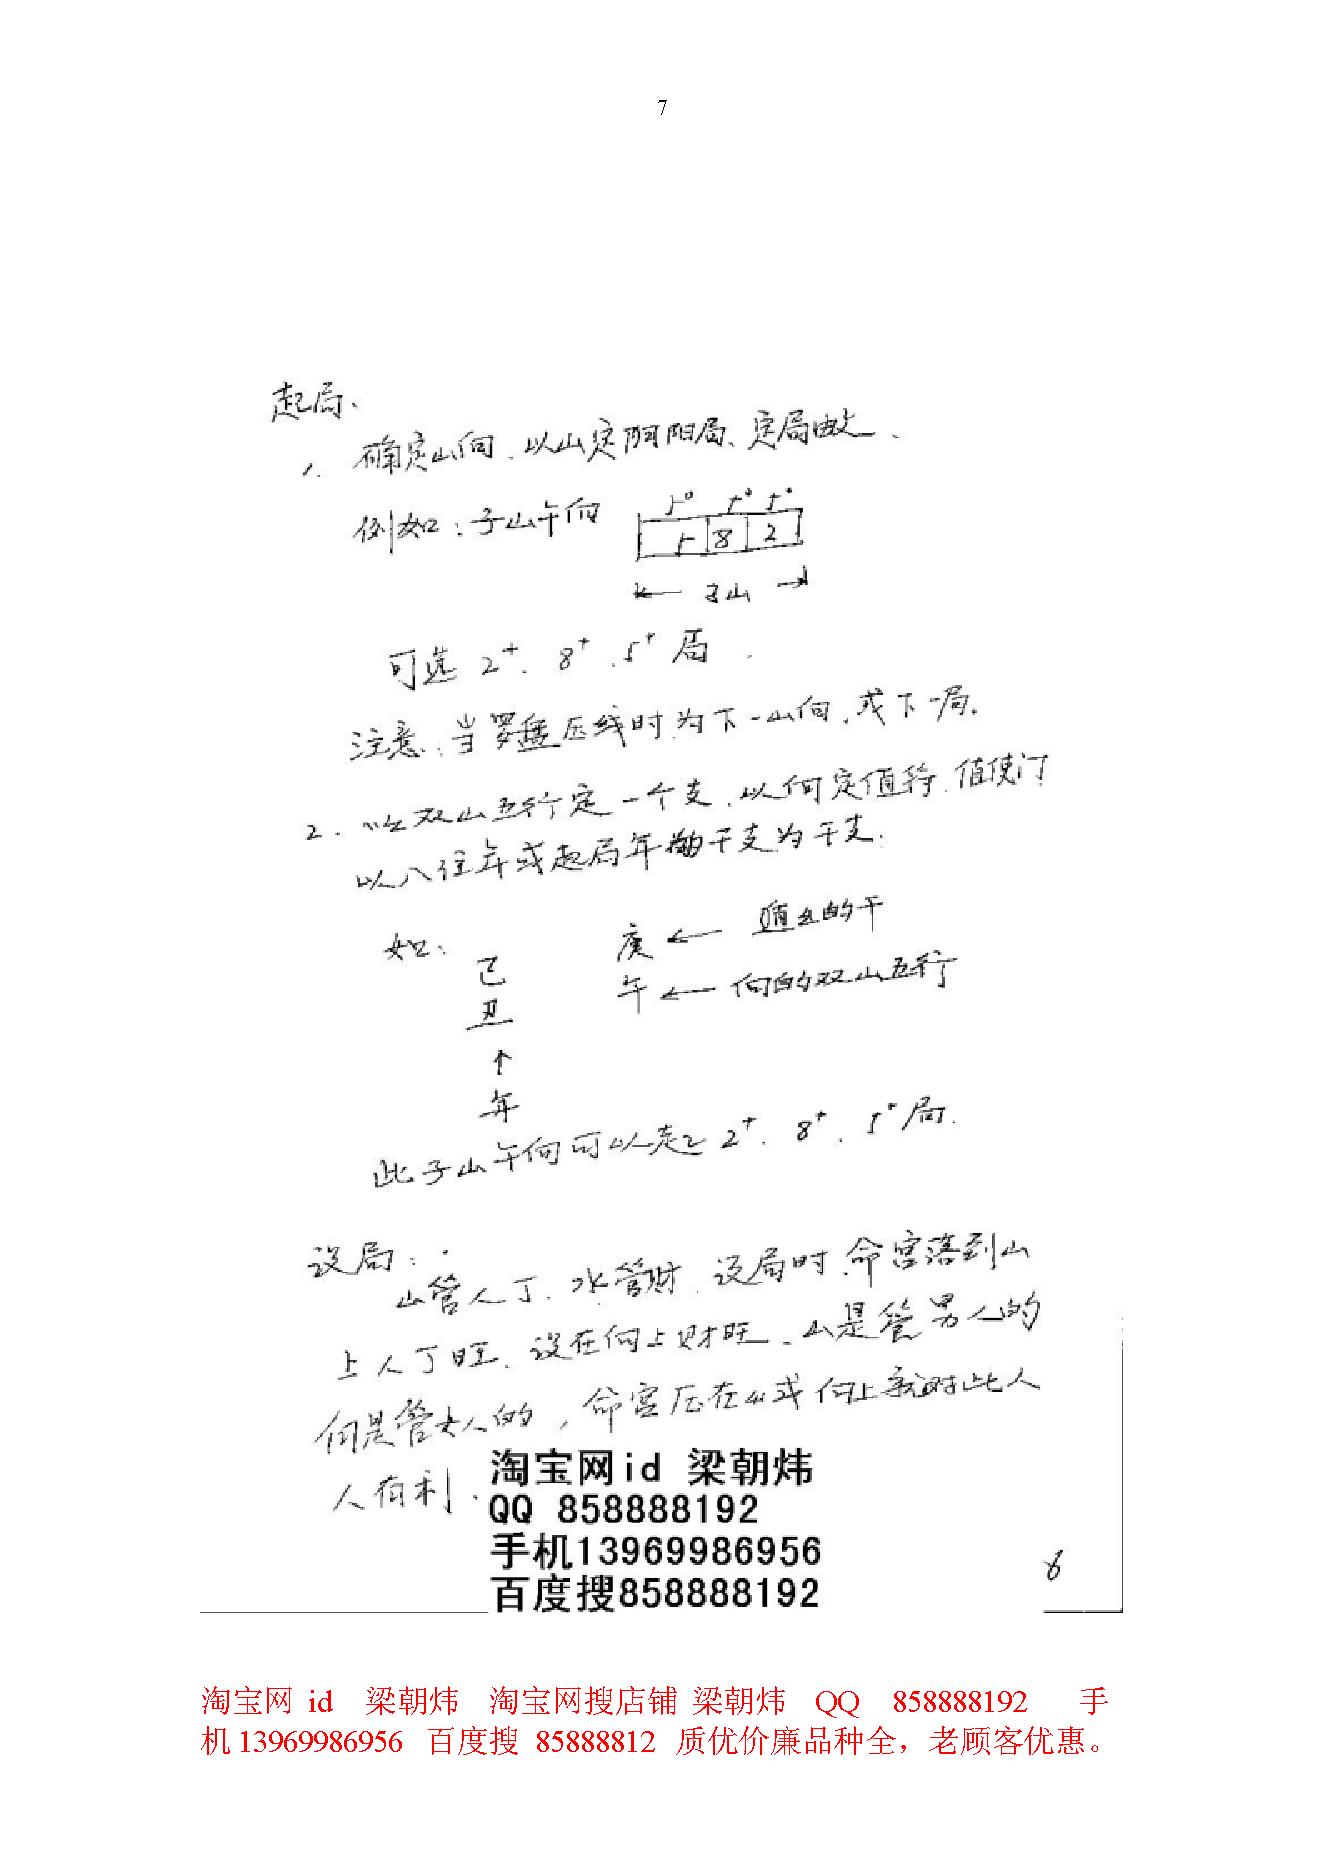 7
起局、
1. 确定山向、以山定阴阳局、定局数、
例如：子山午向
5° 5° 5°
5 8 2
← 子山 →
可选 2⁺、8⁺、5⁺局.
注意：当罗盘压线时为下一山向，或下一局.
2. 以双山五行定一个支，以向定值符、值使门
以八住年或起局年的干支为干支.
如： 己 庚 ← 遁出的干
丑 午 ← 向的双山五行
↑
年
此子山午向可以走 2⁺、8⁺、5⁺局.
设局：
山管人丁、水管财、设局时，命宫落到山
上人丁旺、设在向上财旺、山是管男人的
向是管女人的，命宫压在山或向上就对此人
人有利.
淘宝网id 梁朝炜
QQ 858888192
手机13969986956
百度搜858888192
6
淘宝网 id 梁朝炜 淘宝网搜店铺 梁朝炜 QQ 858888192 手
机 13969986956 百度搜 85888812 质优价廉品种全，老顾客优惠。